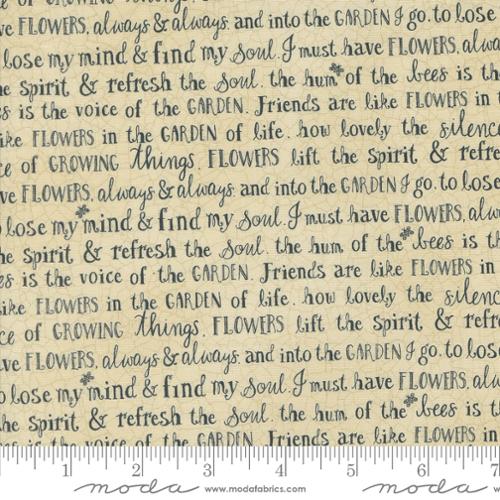 ve FLOWERS, always & always. and into the GARDEN I go. to lose
lose my mind & find my soul. I must have FLOWERS, alwa
he spirit & refresh the soul. the hum of the bees is th
s is the voice of the GARDEN. Friends are like FLOWERS in t
ike FLOWERS in the GARDEN of life. how lovely the silence
ce of GROWING things. FLOWERS lift the spirit & refre
ve FLOWERS, always & always. and into the GARDEN I go. to lose
lose my mind & find my soul. I must have FLOWERS, alw
he spirit & refresh the soul. the hum of the bees is th
es is the voice of the GARDEN. Friends are like FLOWERS in
ike FLOWERS in the GARDEN of life. how lovely the silenc
ce of GROWING things. FLOWERS lift the spirit & refr
ve FLOWERS, always & always. and into the GARDEN I go. to lose
o lose my mind & find my soul. I must have FLOWERS, alw
the spirit & refresh the soul. the hum of the bees is th
is the voice of the GARDEN. Friends are like FLOWERS in
1 2 3 4 5 6 7
moda www.modafabrics.com moda